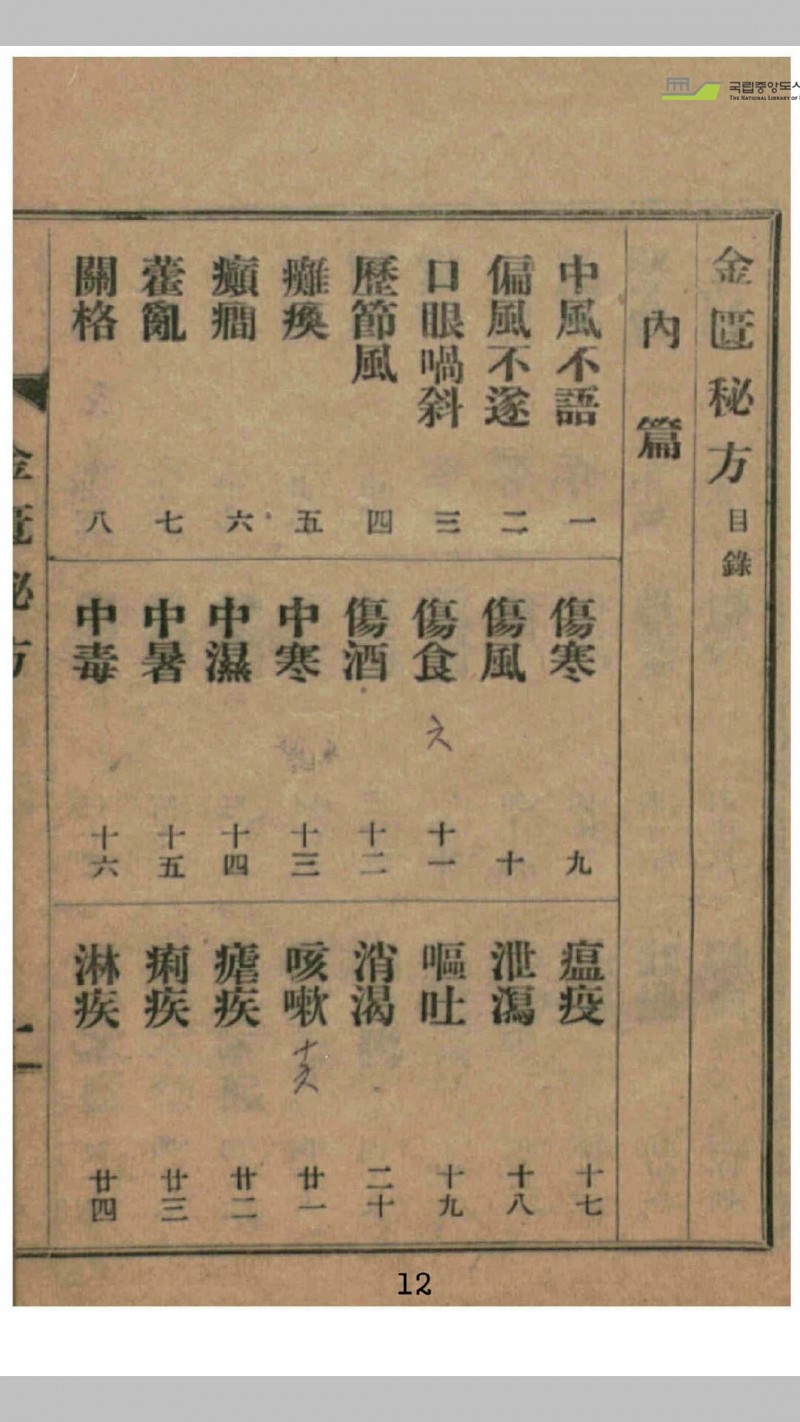 국립중앙도서
THE NATIONAL LIBRARY OF
金匱秘方目錄
內篇
中風不語 一
偏風不遂 二
口眼喎斜 三
歷節風 四
癱瘓 五
癲癎 六
藿亂 七
關格 八
傷寒 九
傷風 十
傷食 六 十一
傷酒 十二
中寒 十三
中濕 十四
中暑 十五
中毒 十六
瘟疫 十七
泄瀉 十八
嘔吐 十九
消渴 二十
咳嗽 十六 廿一
瘧疾 廿二
痢疾 廿三
淋疾 廿四
金匱秘方
12